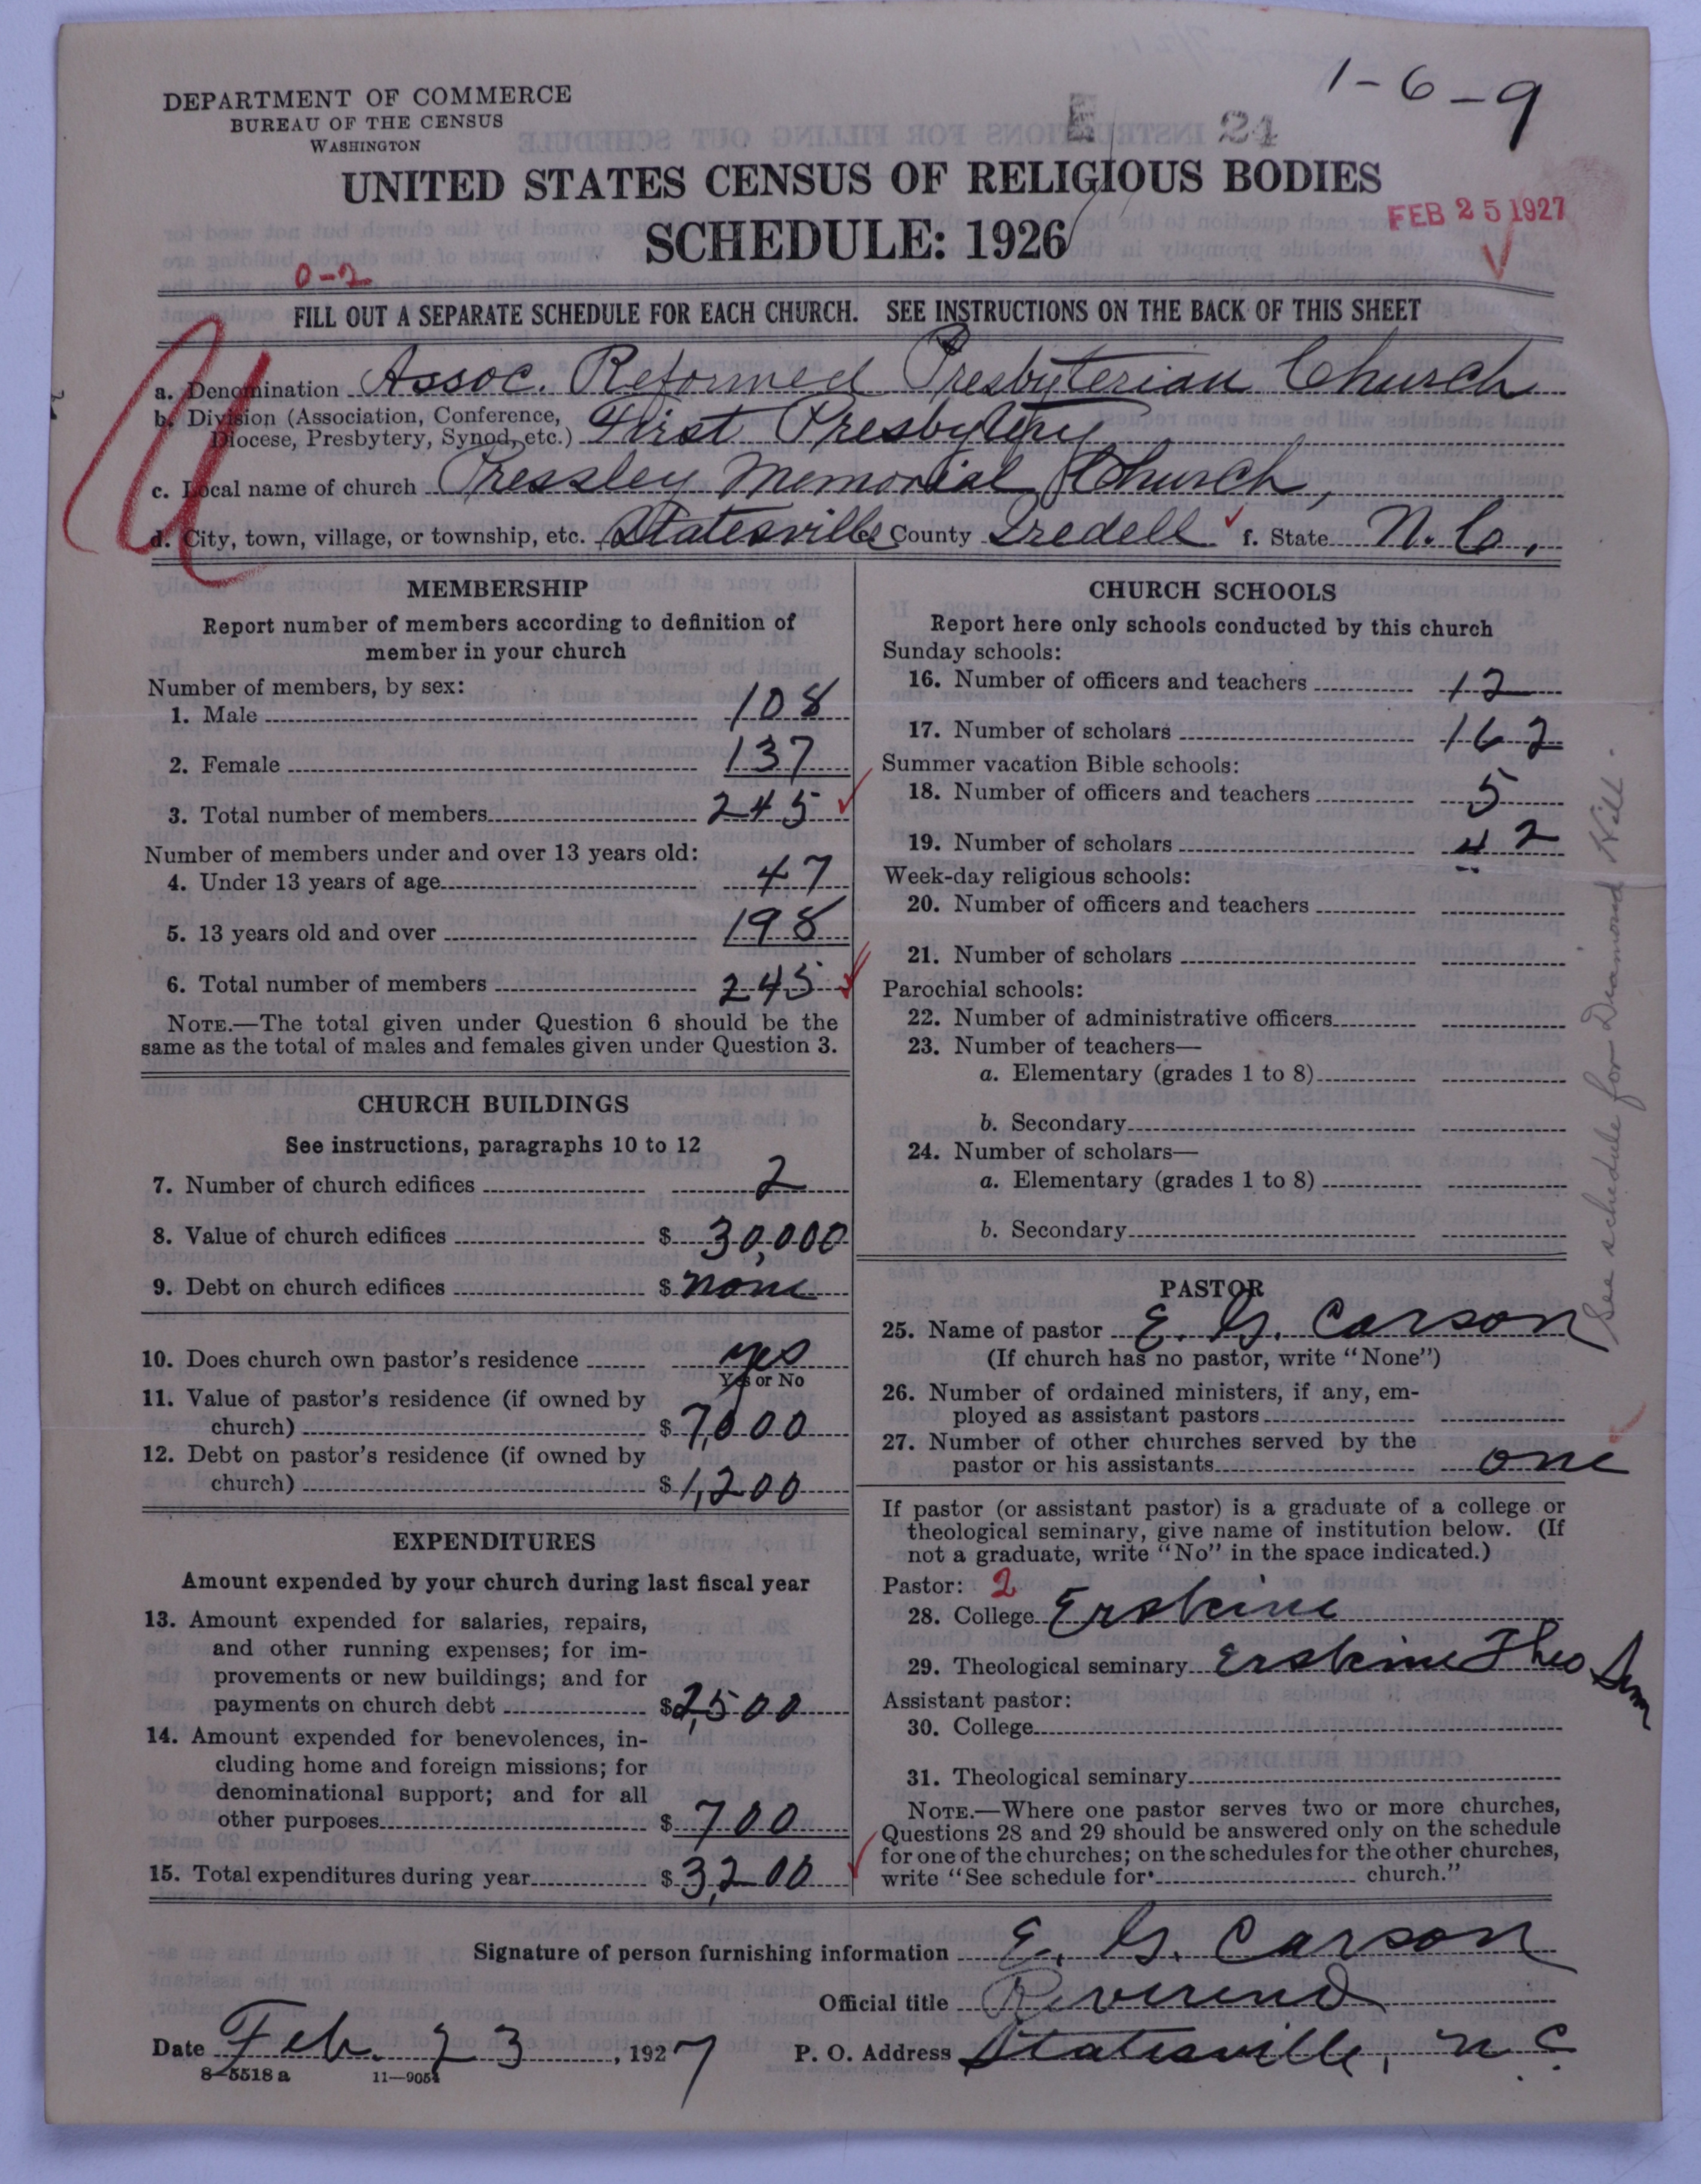 1-6-9
DEPARTMENT OF COMMERCE
BUREAU OF THE CENSUS
WASHINGTON
E 24
UNITED STATES CENSUS OF RELIGIOUS BODIES
SCHEDULE: 1926
FEB 25 1927
0-2
FILL OUT A SEPARATE SCHEDULE FOR EACH CHURCH. SEE INSTRUCTIONS ON THE BACK OF THIS SHEET
a. Denomination Assoc. Reformed Presbyterian Church
b. Division (Association, Conference, Diocese, Presbytery, Synod, etc.) First Presbytery
c. Local name of church Pressley Memorial Church,
d. City, town, village, or township, etc. Statesville County Iredell f. State N. C.
MEMBERSHIP
Report number of members according to definition of
member in your church
Number of members, by sex:
1. Male 108
2. Female 137
3. Total number of members 245
Number of members under and over 13 years old:
4. Under 13 years of age 47
5. 13 years old and over 198
6. Total number of members 245
NOTE.—The total given under Question 6 should be the
same as the total of males and females given under Question 3.
CHURCH BUILDINGS
See instructions, paragraphs 10 to 12
7. Number of church edifices 2
8. Value of church edifices $ 30,000
9. Debt on church edifices $ none
10. Does church own pastor's residence yes
Yes or No
11. Value of pastor's residence (if owned by
church) $ 7,000
12. Debt on pastor's residence (if owned by
church) $ 1,200
EXPENDITURES
Amount expended by your church during last fiscal year
13. Amount expended for salaries, repairs,
and other running expenses; for im-
provements or new buildings; and for
payments on church debt $ 2,500
14. Amount expended for benevolences, in-
cluding home and foreign missions; for
denominational support; and for all
other purposes $ 700
15. Total expenditures during year $ 3,200
CHURCH SCHOOLS
Report here only schools conducted by this church
Sunday schools:
16. Number of officers and teachers 12
17. Number of scholars 162
Summer vacation Bible schools:
18. Number of officers and teachers 5
19. Number of scholars 42
Week-day religious schools:
20. Number of officers and teachers
21. Number of scholars
Parochial schools:
22. Number of administrative officers
23. Number of teachers—
a. Elementary (grades 1 to 8)
b. Secondary
24. Number of scholars—
a. Elementary (grades 1 to 8)
b. Secondary
PASTOR
25. Name of pastor E. G. Carson
(If church has no pastor, write "None")
26. Number of ordained ministers, if any, em-
ployed as assistant pastors
27. Number of other churches served by the
pastor or his assistants one
If pastor (or assistant pastor) is a graduate of a college or
theological seminary, give name of institution below. (If
not a graduate, write "No" in the space indicated.)
Pastor: 2
28. College Erskine
29. Theological seminary Erskine Theo Sem
Assistant pastor:
30. College
31. Theological seminary
NOTE.—Where one pastor serves two or more churches,
Questions 28 and 29 should be answered only on the schedule
for one of the churches; on the schedules for the other churches,
write "See schedule for church."
See schedule for Diamond Hill.
Signature of person furnishing information E. G. Carson
Official title Reverend
Date Feb. 23, 1927 P. O. Address Statesville, N. C.
8-5518 a 11—9054